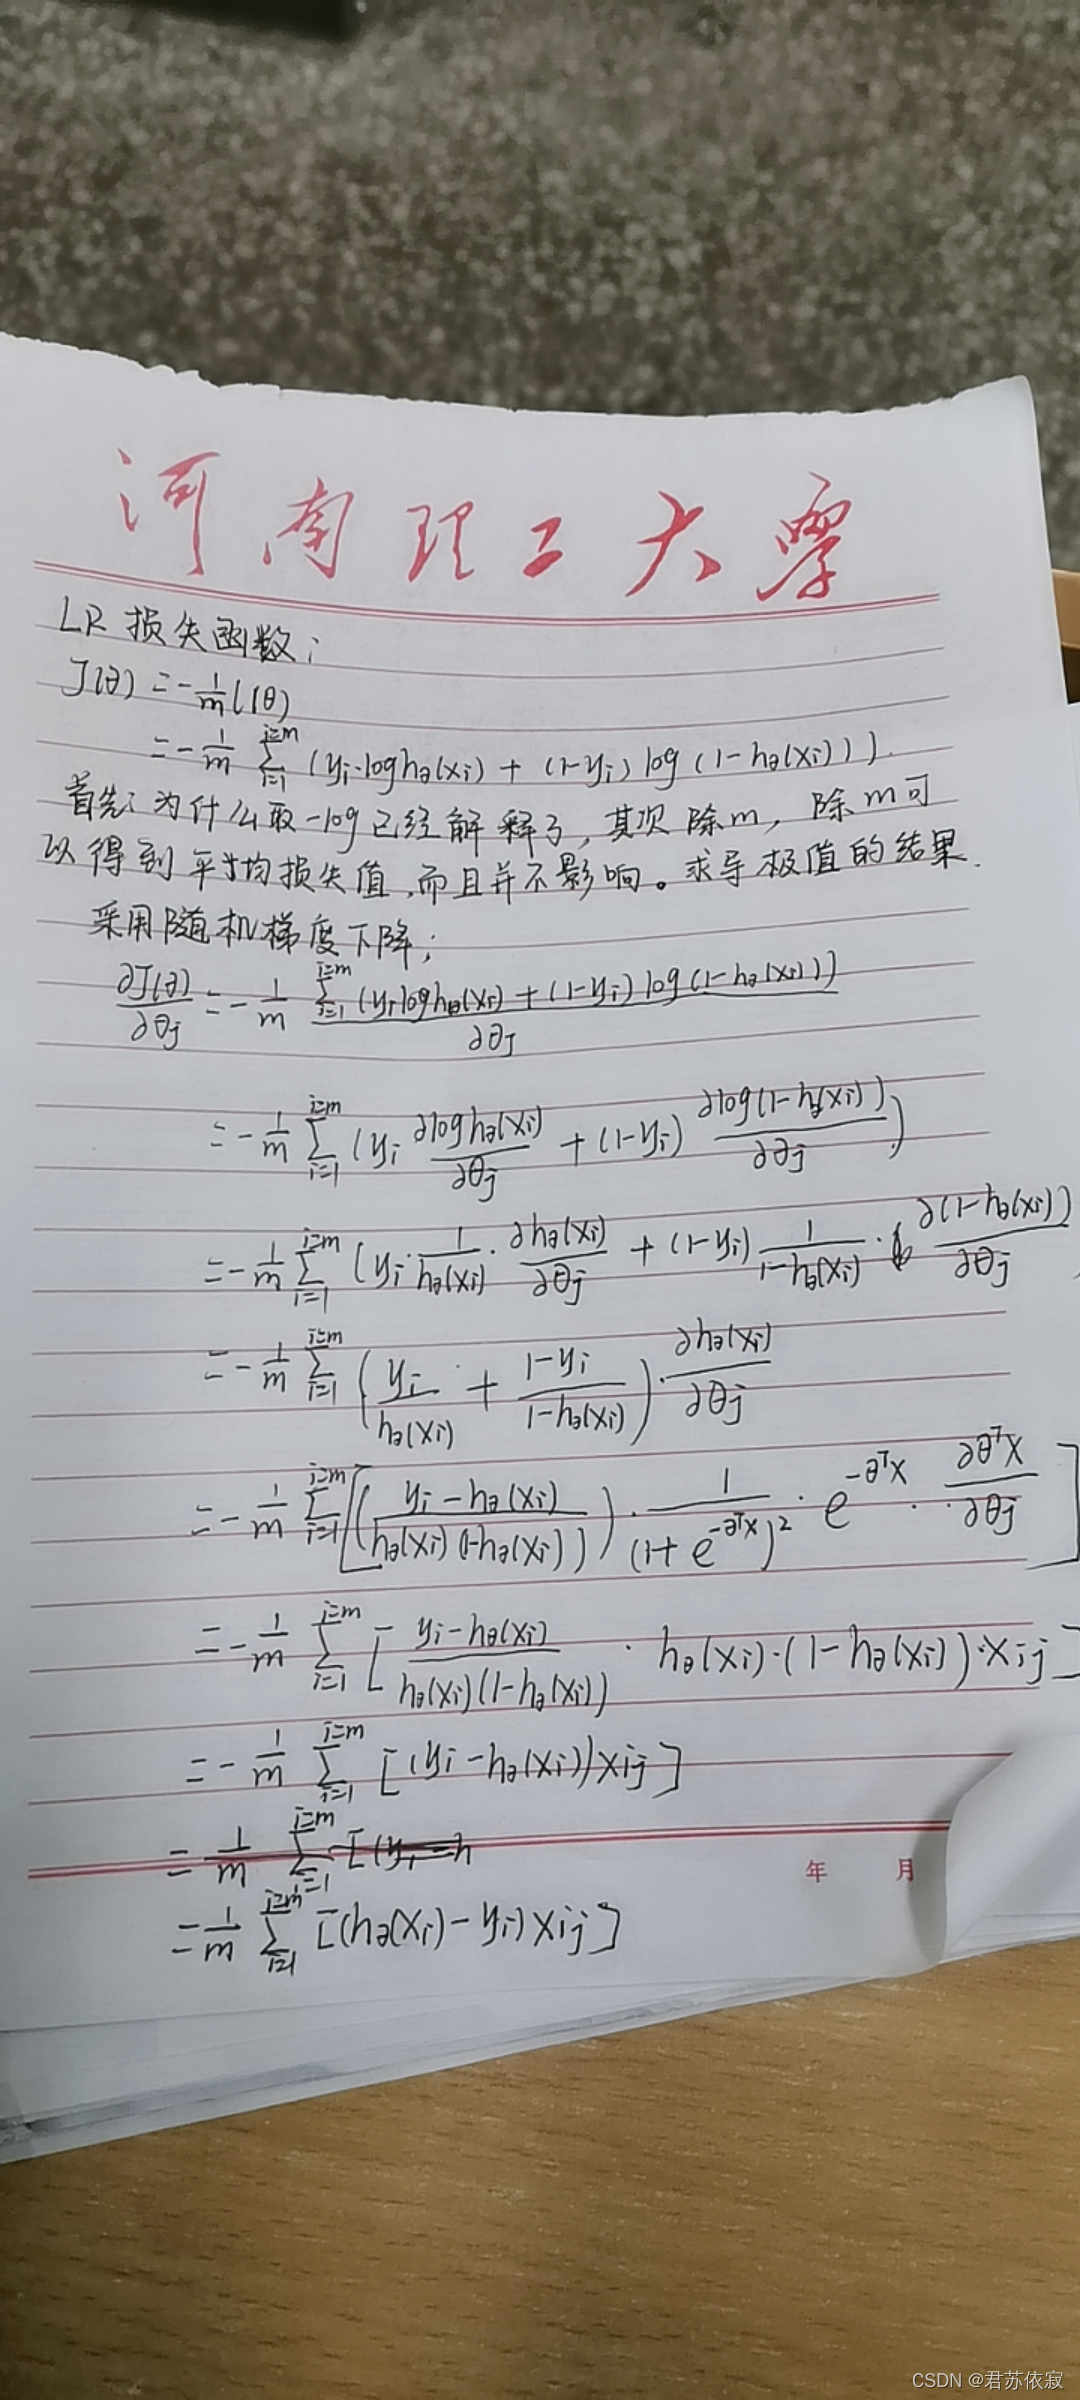 河南理工大學
LR 损失函数:
J(θ) = -1/m l(θ)
= -1/m Σ_{i=1}^{i=m} (yi·log hθ(xi) + (1-yi) log (1-hθ(xi)))
首先:为什么取-log已经解释了,其次除m,除m可
以得到平均损失值,而且并不影响。求导极值的结果.
采用随机梯度下降;
∂J(θ)/∂θj = -1/m Σ_{i=1}^{i=m} (yi log hθ(xi) + (1-yi) log (1-hθ(xi)))/∂θj
= -1/m Σ_{i=1}^{i=m} (yi ∂log hθ(xi)/∂θj + (1-yi) ∂log(1-hθ(xi))/∂θj)
= -1/m Σ_{i=1}^{i=m} (yi · 1/hθ(xi) · ∂hθ(xi)/∂θj + (1-yi) 1/(1-hθ(xi)) · ∂(1-hθ(xi))/∂θj
= -1/m Σ_{i=1}^{i=m} (yi/hθ(xi) + (1-yi)/(1-hθ(xi))) · ∂hθ(xi)/∂θj
= -1/m Σ_{i=1}^{i=m} [((yi-hθ(xi))/(hθ(xi)(1-hθ(xi)))) · 1/(1+e^{-θ^T x})^2 · e^{-θ^T x} · ∂θ^T x/∂θj]
= -1/m Σ_{i=1}^{i=m} [(yi-hθ(xi))/(hθ(xi)(1-hθ(xi))) · hθ(xi)·(1-hθ(xi))·xij]
= -1/m Σ_{i=1}^{i=m} [(yi-hθ(xi))xij]
= 1/m Σ_{i=1}^{i=m} [(yi-h
年 月
= 1/m Σ_{i=1}^{i=m} [(hθ(xi)-yi)xij]
CSDN @君苏依寂